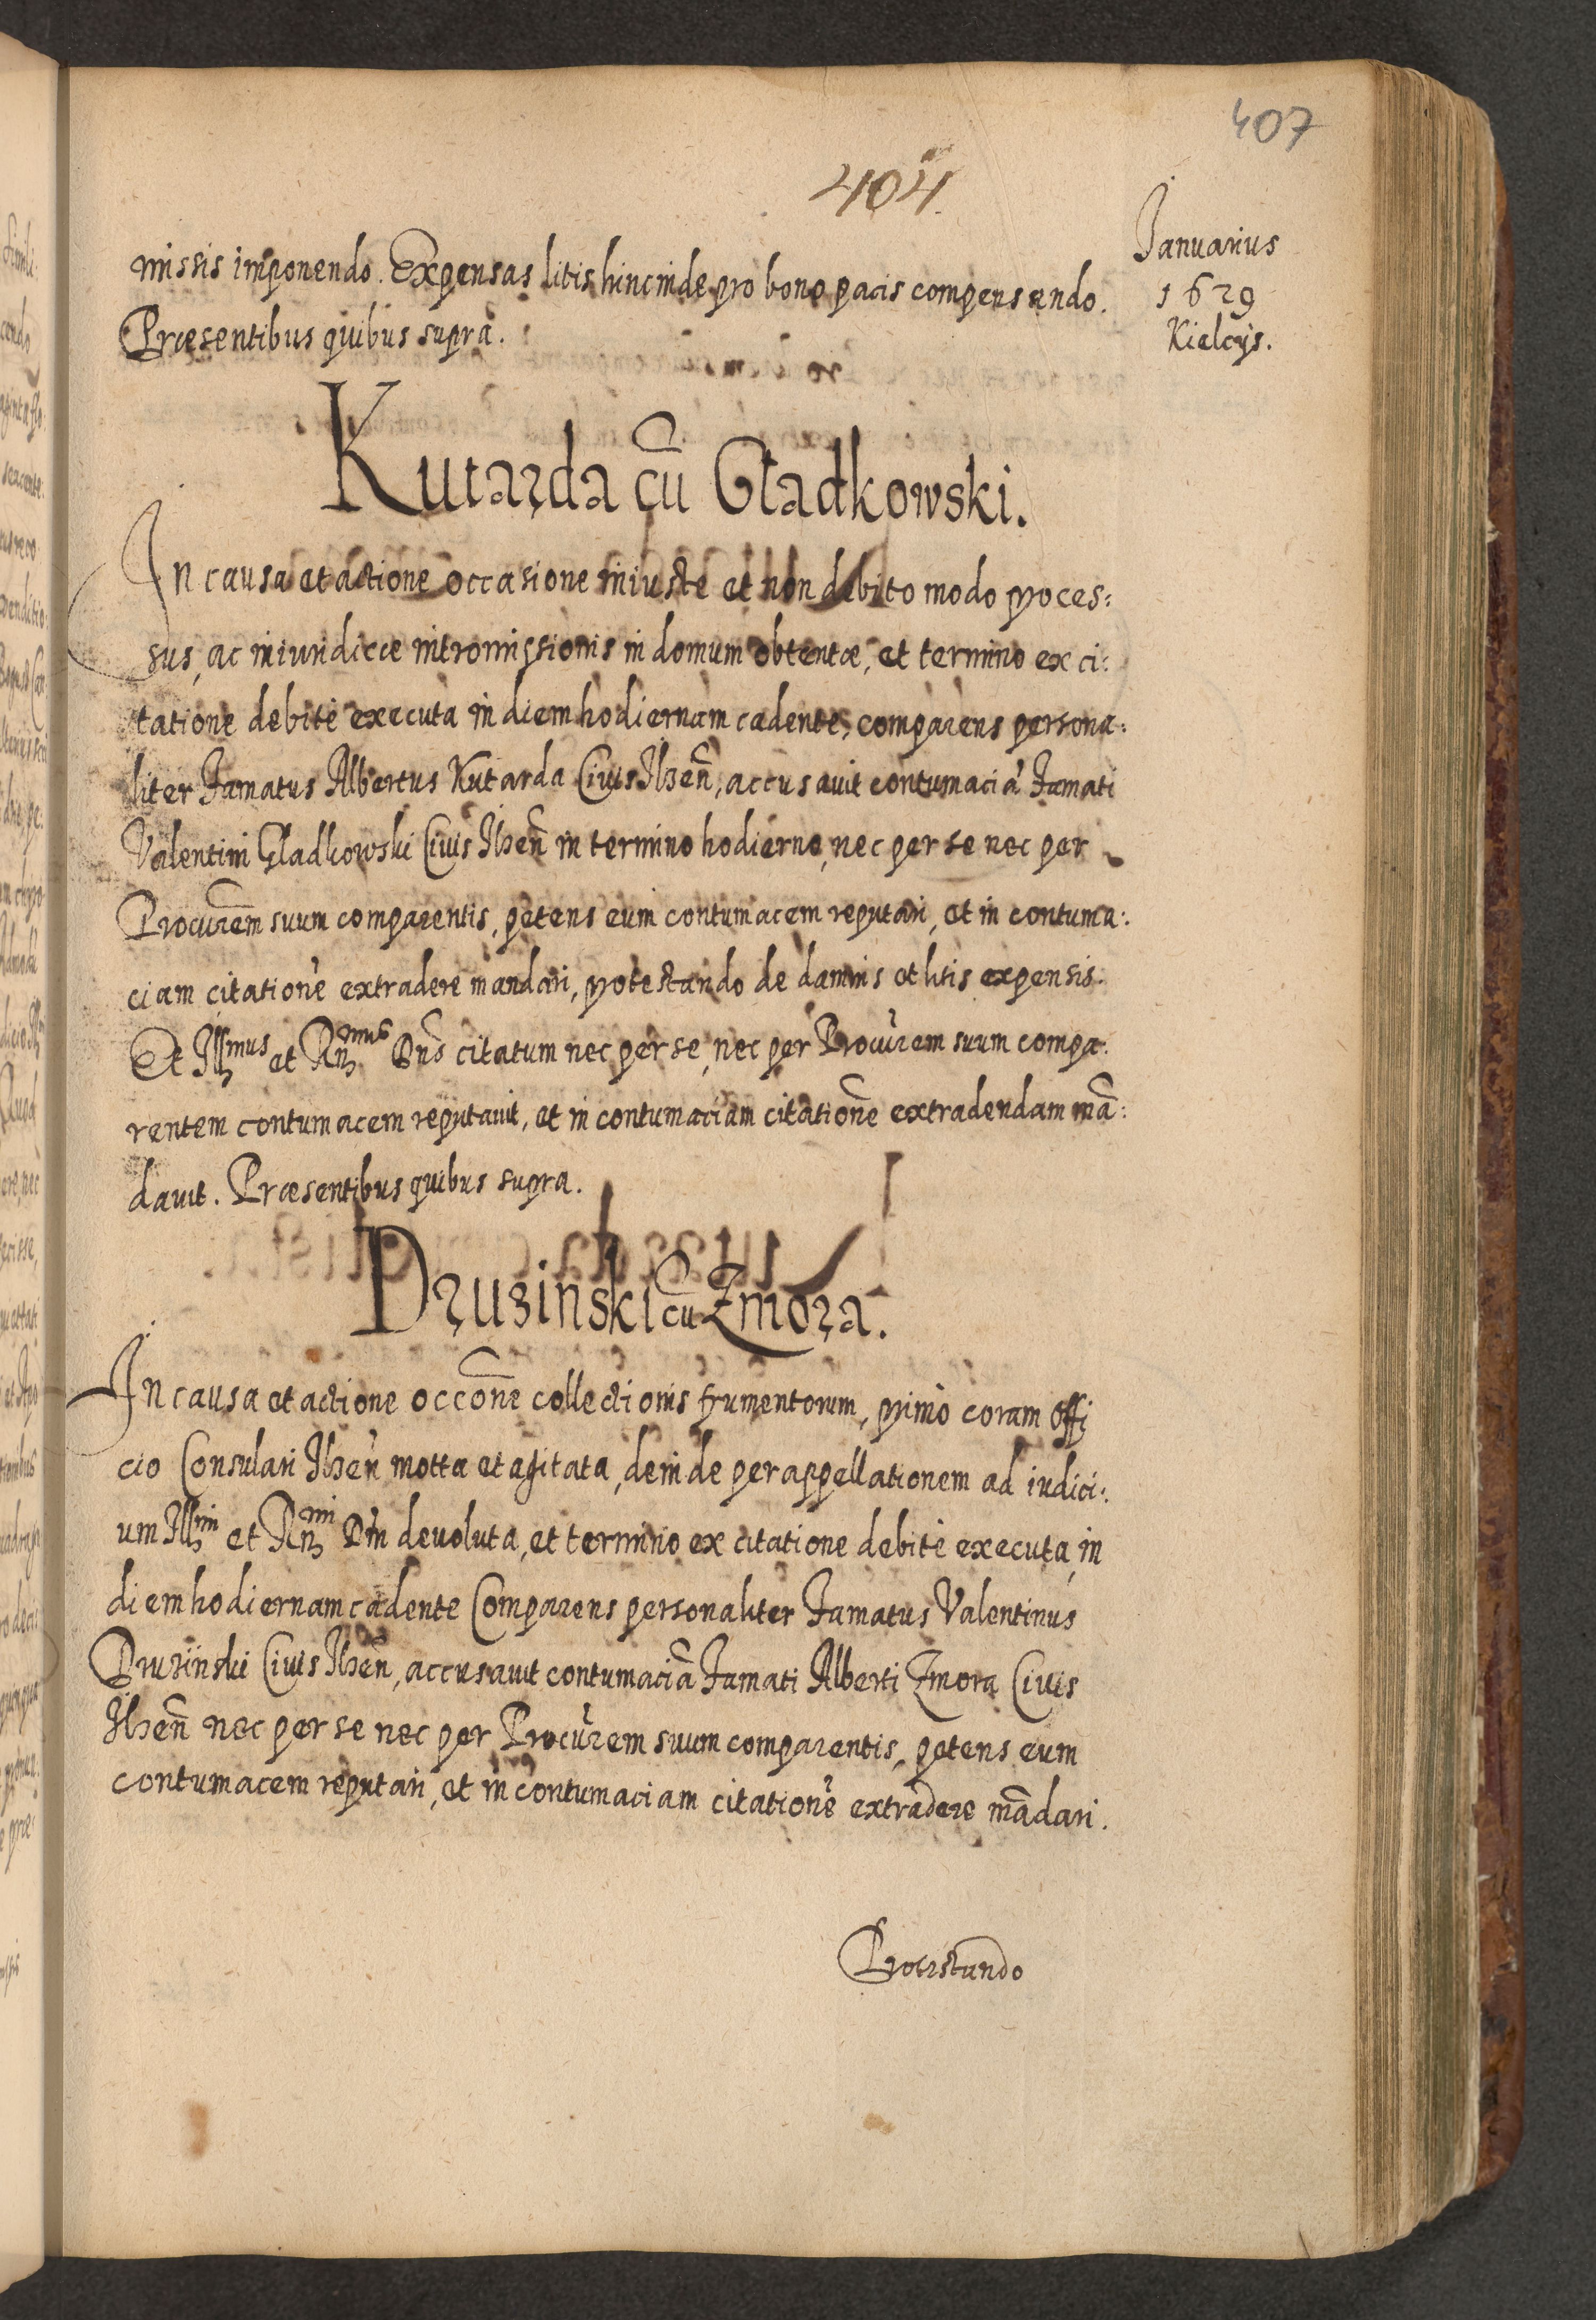 407
404.
Januarius
1629
Kielcijs.
missis imponendo. Expensas litis hincinde pro bono pacis compensando.
Præsentibus quibus supra.
Kutarda cũ Gładkowski.
In causa et actione occasione iniuste et non debito modo proces:
sus, ac iniuridicæ intromissionis in domum obtentæ, et termino ex ci:
tatione debite executa in diem hodiernam cadente, comparens persona:
liter Famatus Albertus Kutarda Civis Ilzeñ, accusavit contumaciã Famati
Valentini Gladkowski Civis Ilzeñ in termino hodierno, nec per se nec per
Procurem̃ suum comparentis, petens eum contumacem reputari, et in contuma:
ciam citationẽ extradere mandari, protestando de damnis et litis expensis.
Et Illmus et Rñmus Dñs citatum nec per se, nec per Procũrem suum compa:
rentem contumacem reputavit, et in contumaciam citationẽ extradendam mã:
davit. Præsentibus quibus supra.
Druzinski cũ Zmora.
In causa et actione occõne collectionis frumentorum, primò coram offi
cio Consulari Ilzeñ motta et agitata, deinde per appellationem ad iudici:
um Illmi et Rñmi Dñi devoluta, et termino ex citatione debitè executa in
diem hodiernam cadente Comparens personaliter Famatus Valentinus
Druzinski Civis Ilzeñ, accusavit contumaciã Famati Alberti Zmora Civis
Ilzeñ nec per se nec per Procũrem suum comparentis, petens eum
contumacem reputari, et in contumaciam citationẽ extradere mãdari.
Protestando